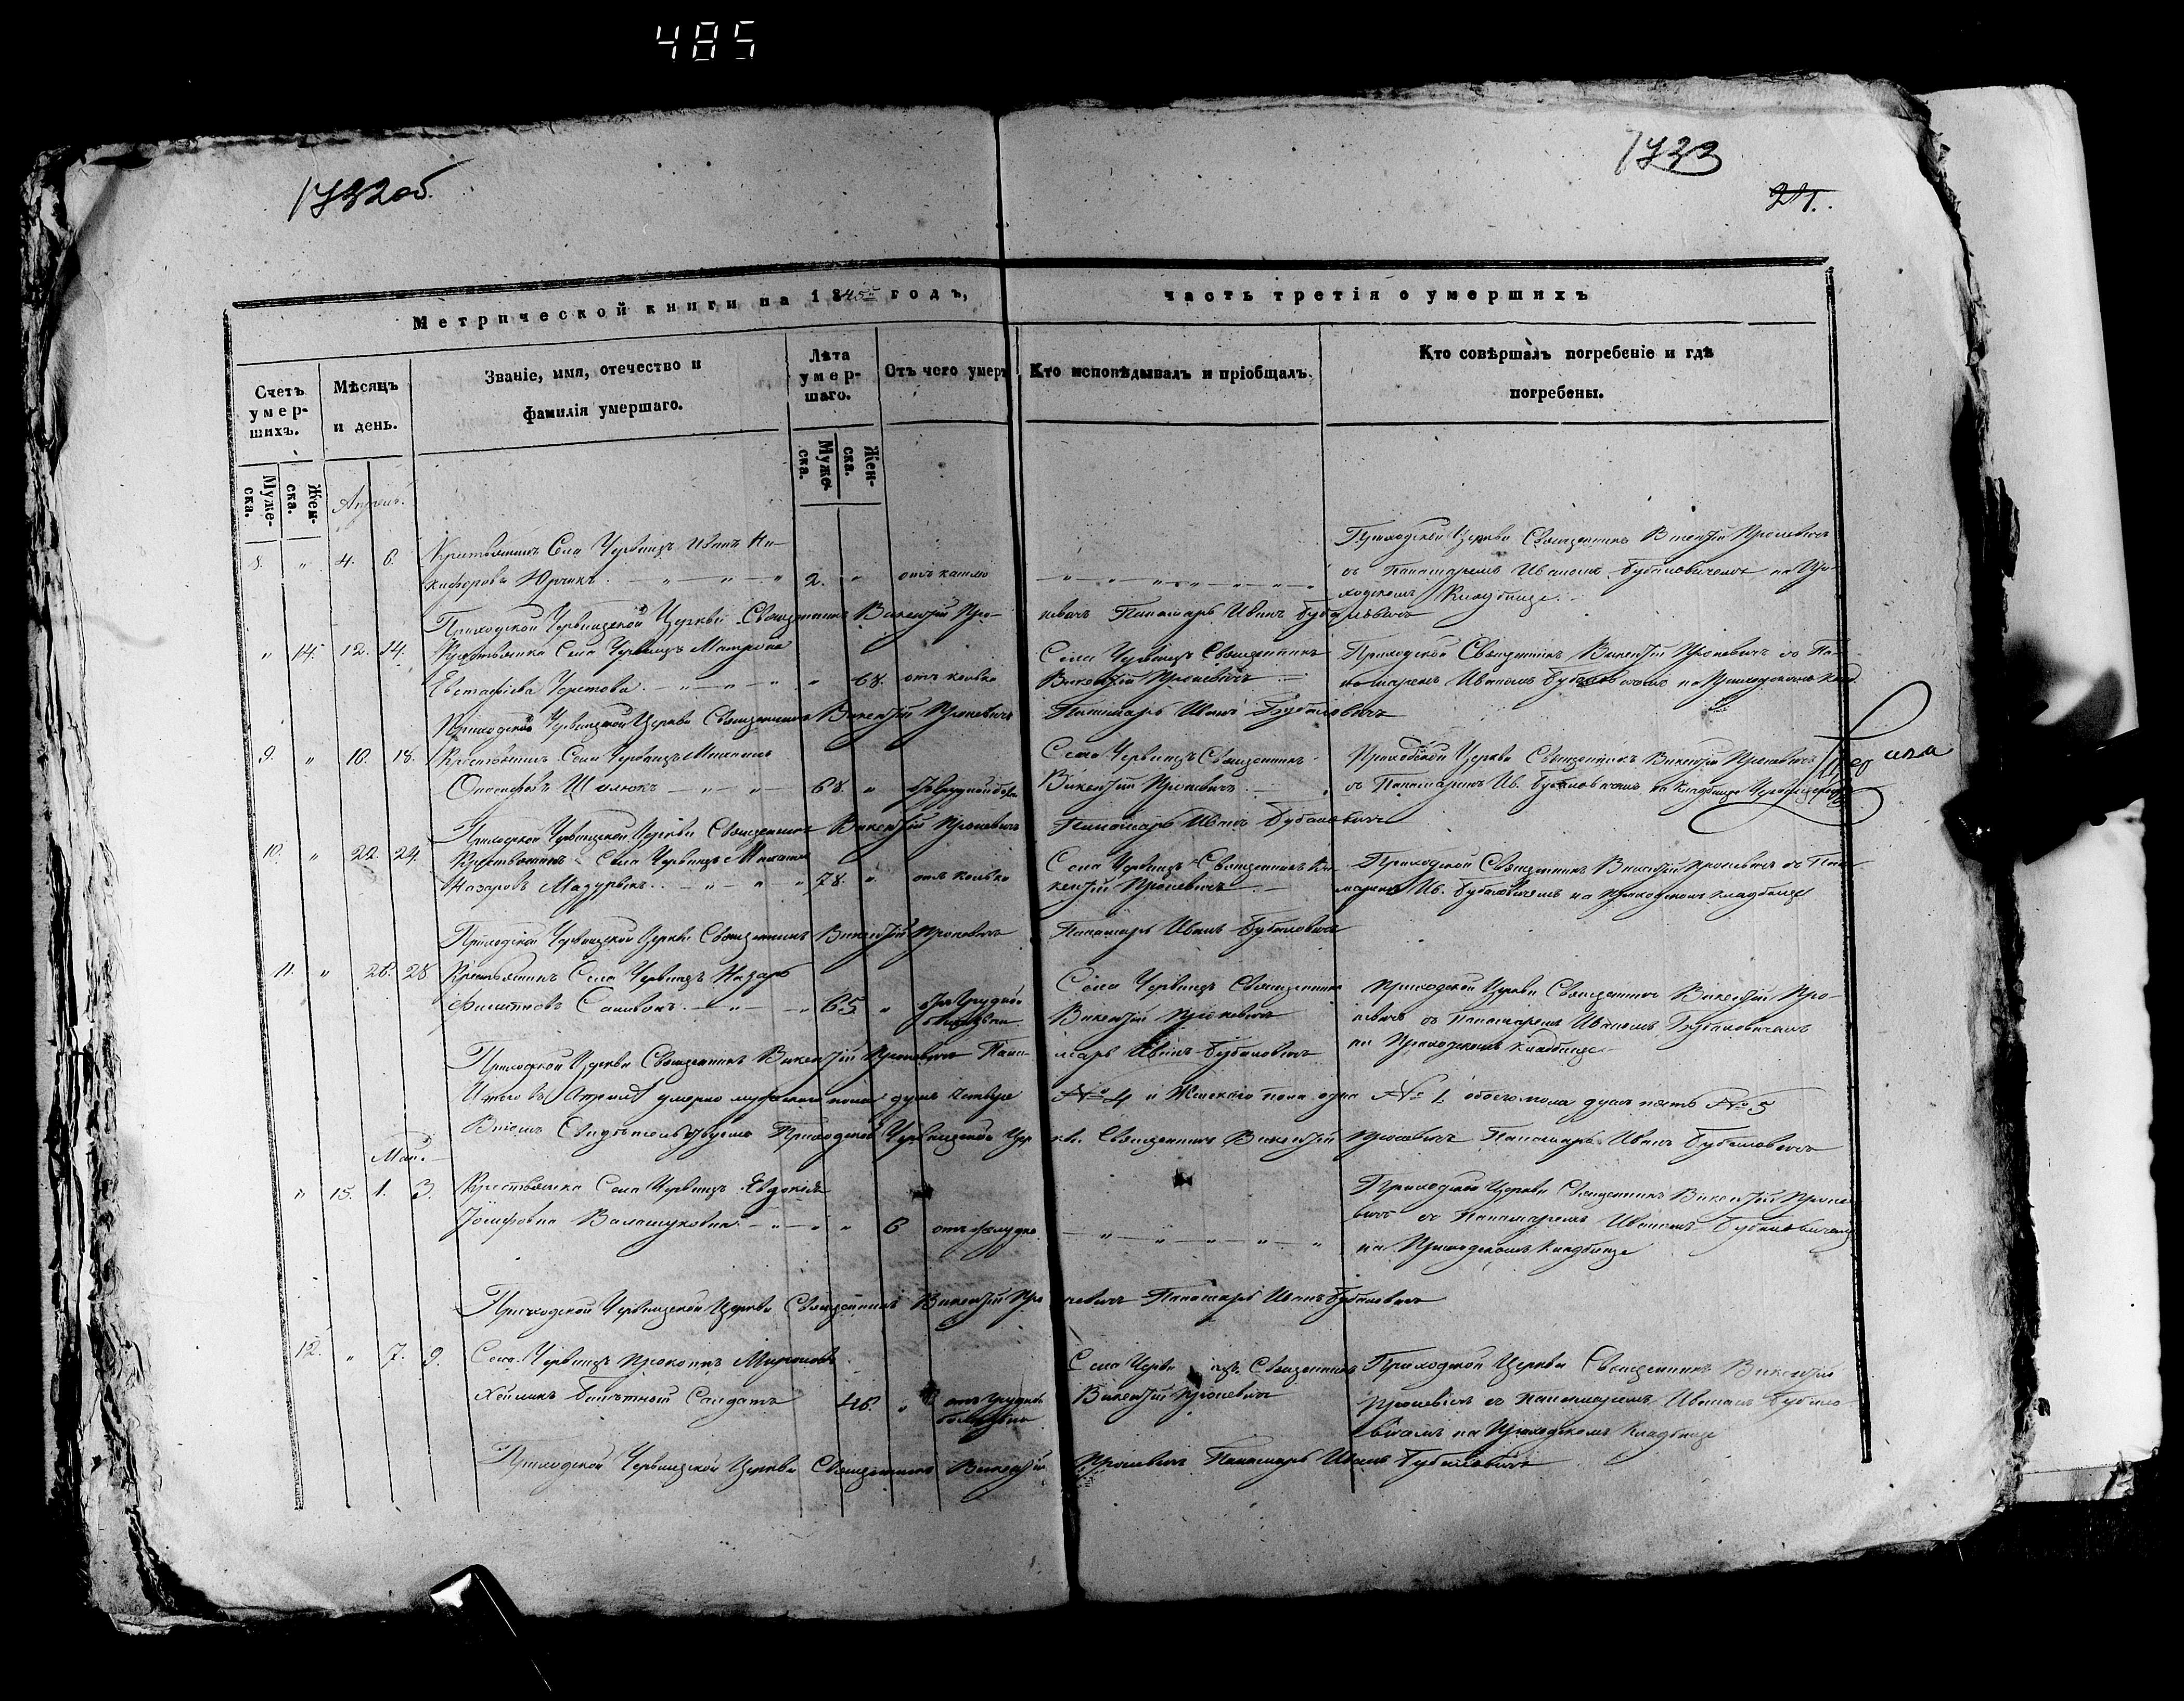 485
1732об.
1733
21.
Метрической книги на 1845й годъ,
часть третія о умершихъ
Счетъ умер-шихъ.
Мѣсяцъ и день.
Званіе, имя, отечество и фамилія умершаго.
Лѣта умер-шаго.
Отъ чего умеръ
Кто исповѣдывалъ и пріобщалъ.
Кто совѣршалъ погребеніе и гдѣ погребены.
Муже-ска.
Жен-ска.
Муже-ска.
Жен-ска.
Апрель.
8. " 4. 6. Крестьянинъ Села Червищъ Иванъ Ни-
кифоровъ 2. " отъ кашлю
Приходской Церкви Священникъ Викентій Проневичъ
съ Панамаремъ Иваномъ Бубановичемъ на При-
ходскомъ Кладбище
Приходской Червищской Церкви Священникъ Викентій Про-
невичъ Панамарь Иванъ Бубановичъ
" 14. 12. 14. Крестьянка Села Червищъ Матрона
Евстафіева " 68. отъ колькы
Села Червищъ Священникъ
Викентій Проневичъ
Приходской Священникъ Викентій Проневичъ съ Па-
намаремъ Иваномъ Бубановичемъ на Приходскомъ Клад.
Приходской Червищской Церкви Священникъ Викентій Проневичъ Панамарь Иванъ Бубановичъ
9. " 16. 18. Крестьянинъ Села Червищъ
68. "
Села Червищъ Священникъ
Викентій Проневичъ
Приходской Церкви Священникъ Викентій Проневичъ
съ Панамаремъ Ив. Бубановичемъ на Кладбище
Приходской Червищской Церкви Священникъ Викентій Проневичъ Панамарь Иванъ Бубановичъ
10. " 22. 24. Крестьянинъ Села Червищъ
Назаровъ Мазурыкъ 78. " отъ колькы
Села Червищъ Священникъ Ви-
кентій Проневичъ
Приходской Священникъ Викентій Проневичъ съ Пана-
маремъ Ив. Бубановичемъ на Приходскомъ Кладбище
Приходской Червищской Церкви Священникъ Викентій Проневичъ Панамарь Иванъ Бубановичъ
11. " 26. 28 Крестьянинъ Села Червищъ Назаръ
Филиповъ 65. " отъ Грудной
болезни
Села Червищъ Священникъ
Викентій Проневичъ
Приходской Церкви Священникъ Викентій Про-
невичъ съ Панамаремъ Иваномъ Бубановичемъ
на Приходскомъ Кладбище
Приходской Церкви Священникъ Викентій Проневичъ Пана-
марь Иванъ Бубановичъ
Итого въ Апреле умерло мужескаго пола душъ четыре № 4 и Женскаго пола одна № 1. обоего пола душъ пять № 5
Въ томъ Свидѣтельствуемъ Приходской Червищской Цер-
кви Священникъ Викентій Проневичъ Панамарь Иванъ Бубановичъ
Май.
" 15. 1. 3. Крестьянка Села Червищъ Евдокія
Іосифовна " 6
Приходской Церкви Священникъ Викентій Проне-
вичъ съ Панамаремъ Иваномъ Бубановичемъ
на Приходскомъ Кладбище
Приходской Червищской Церкви Священникъ Викентій Про-
невичъ Панамарь Иванъ Бубановичъ
12. " 7. 9. Села Червищъ Прокопъ Мироновъ
билетный Солдатъ 46. " отъ Грудной
болезни
Села Червищъ Священникъ
Викентій Проневичъ
Приходской Церкви Священникъ Викентій
Проневичъ съ Панамаремъ Иваномъ Бубано-
вичемъ на Приходскомъ Кладбище
Приходской Червищской Церкви Священникъ Викентій Проневичъ Панамарь Иванъ Бубановичъ